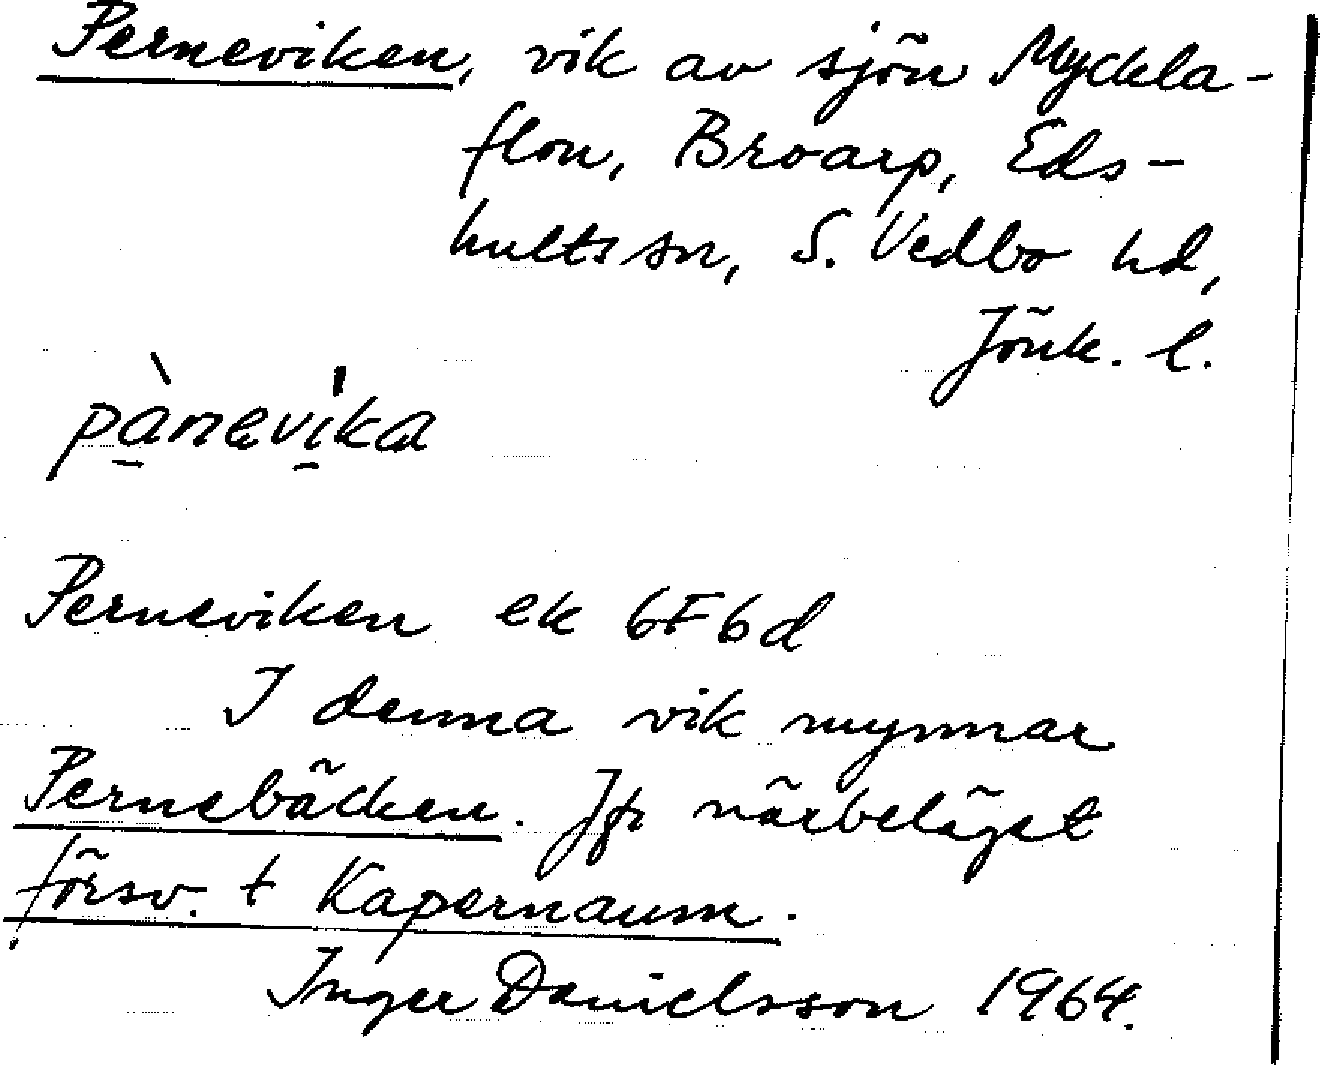 Perneviken, vik av sjön Myckla-
flon, Broarp, Eds-
hults sn, S. Vedbo hd,
Jönk. l.
pà̱nevi̱̍ka
Perneviken ek 6F6d
I denna vik mynnar
Pernebäcken. Jfr närbeläget
försv. t Kapernaum.
Inger Danielsson 1964.